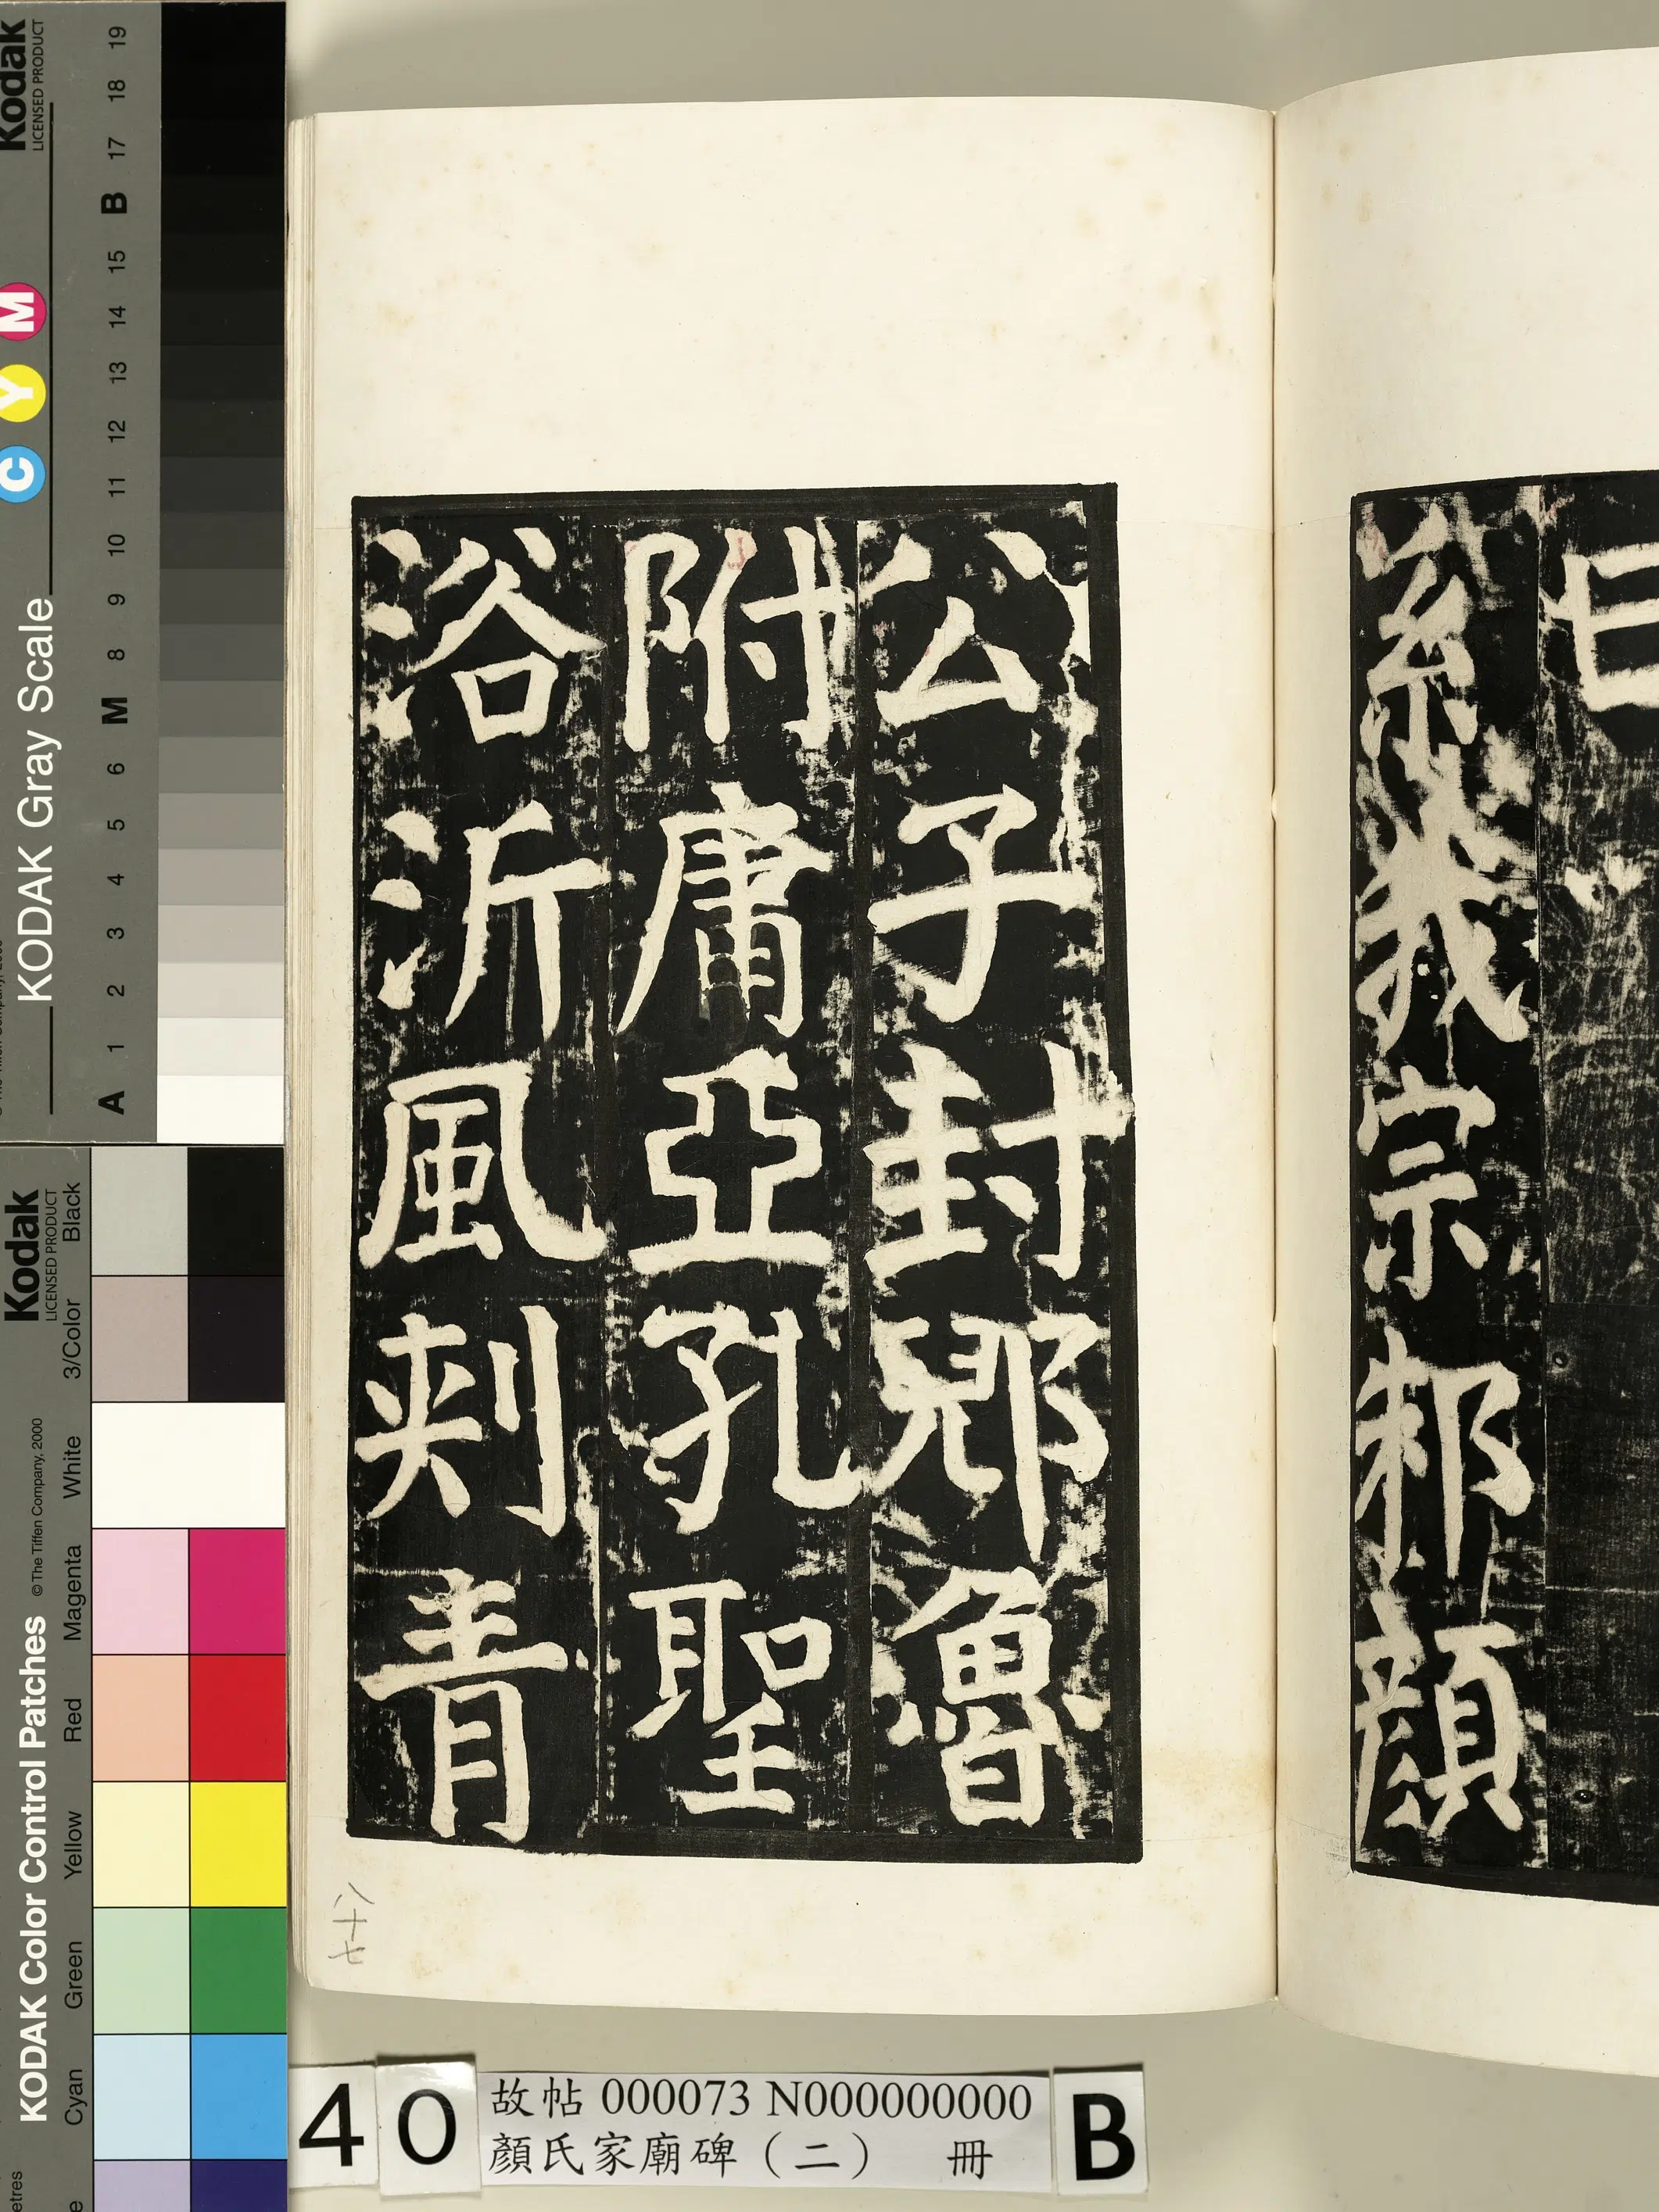 曰
系我宗邾顏
公子封郳魯
附庸亞孔聖
浴沂風刺青
八十七
40
故帖 000073 N000000000
顏氏家廟碑（二） 冊
B
Kodak
LICENSED PRODUCT
KODAK Gray Scale
C Y M
A 1 2 3 4 5 6 M 8 9 10 11 12 13 14 15 B 17 18 19
Kodak
LICENSED PRODUCT
KODAK Color Control Patches
© The Tiffen Company, 2000
Cyan Green Yellow Red Magenta White 3/Color Black